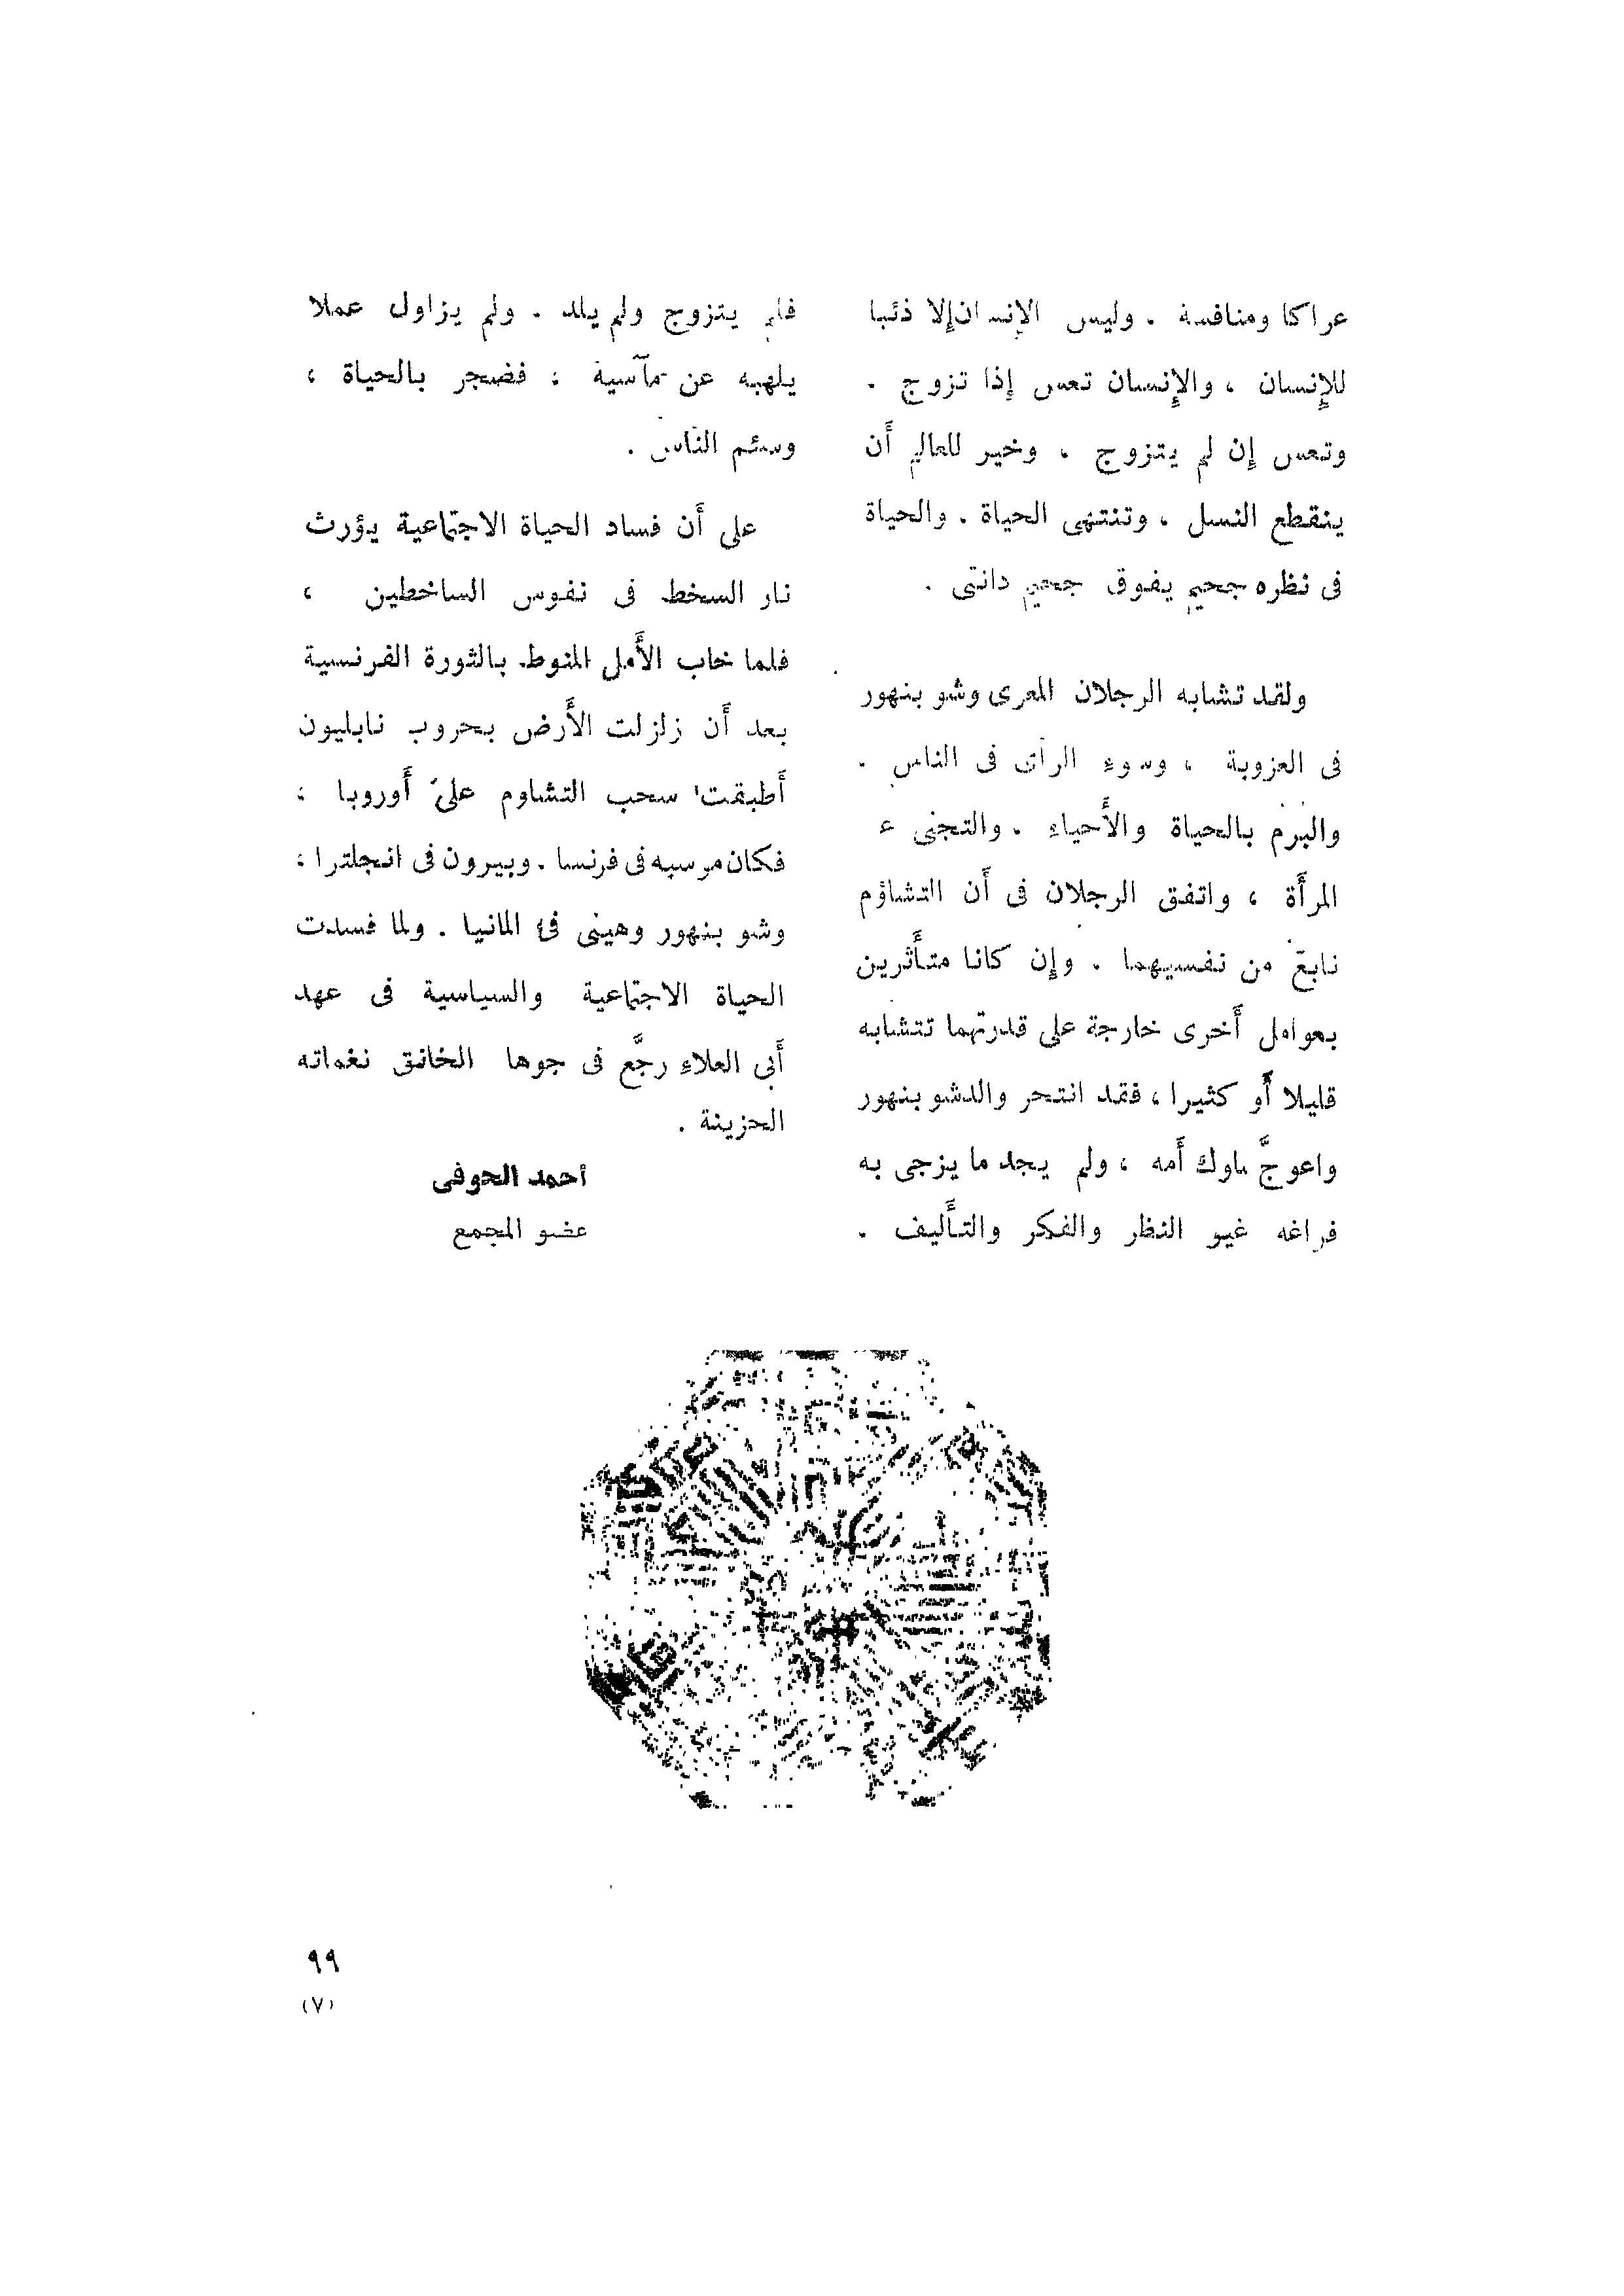 عراكا ومنافسة . وليس الإنسان إلا ذئبا
للإنسان ، والإنسان تعس إذا تزوج .
وتعس إن لم يتزوج ، وخير للعالم أن
ينقطع النسل ، وتنتهى الحياة . والحياة
فى نظره جحيم يفوق جحيم دانتى .
ولقد تشابه الرجلان المعرى وشو بنهور
فى العزوبة ، وسوء الرأى فى الناس .
والبرم بالحياة والأحياء . والتجنى ء
المرأة ، واتفق الرجلان فى أن التشاؤم
نابع من نفسيهما . وإن كانا متأثرين
بعوامل أخرى خارجة على قدرتهما تتشابه
قليلا أو كثيرا ، فقد انتحر والد شو بنهور
واعوجَّ سلوك أمه ، ولم يجد ما يزجى به
فراغه غير النظر والفكر والتأليف .
فلم يتزوج ولم يلد . ولم يزاول عملا
يلهيه عن مآسيه ؛ فضجر بالحياة ،
وسئم الناس .
على أن فساد الحياة الاجتماعية يؤرث
نار السخط فى نفوس الساخطين ،
فلما خاب الأمل المنوط بالثورة الفرنسية
بعد أن زلزلت الأرض بحروب نابليون
أطبقت سحب التشاوم على أوروبا ؛
فكان مرسيه فى فرنسا . وبيرون فى انجلترا ؛
وشو بنهور وهينى فى المانيا . ولما فسدت
الحياة الاجتماعية والسياسية فى عهد
أبى العلاء رجَّع فى جوها الخانق نغماته
الحزينة .
أحمد الحوفى
عضو المجمع
٩٩
(٧)